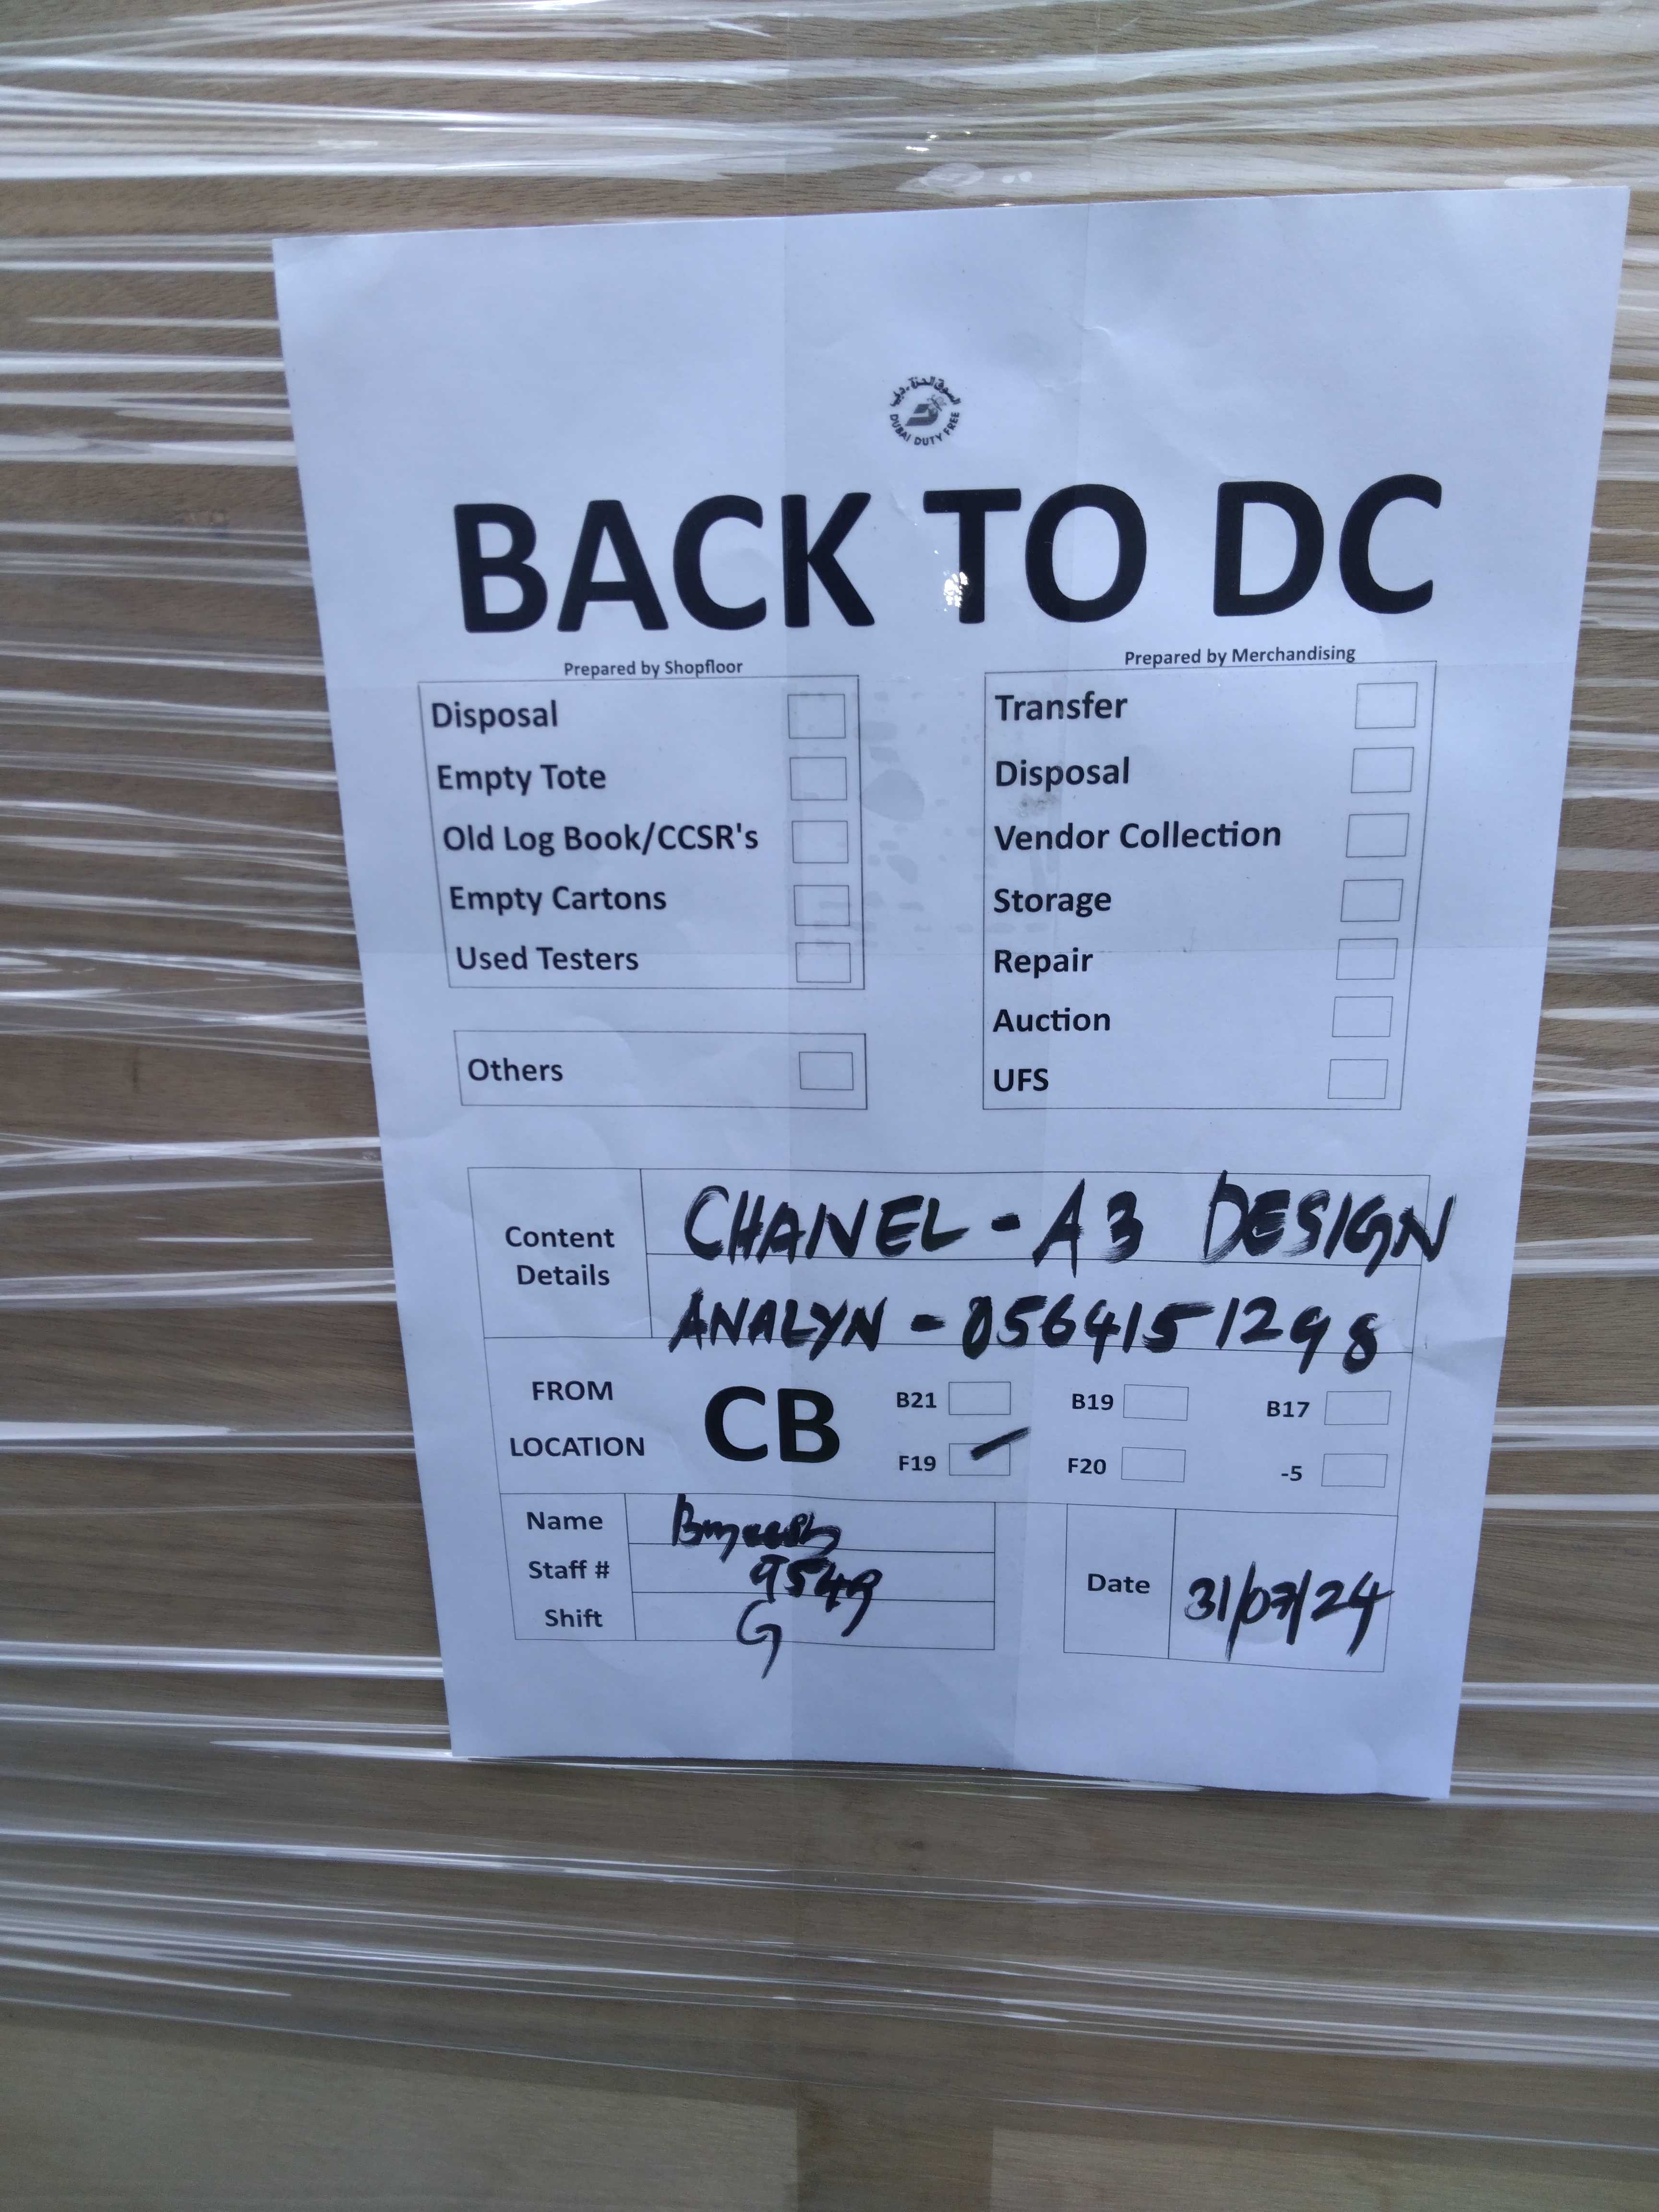 السوق الحرة - دبي
DUBAI DUTY FREE
BACK TO DC
Prepared by Shopfloor
Disposal
Empty Tote
Old Log Book/CCSR's
Empty Cartons
Used Testers
Others
Prepared by Merchandising
Transfer
Disposal
Vendor Collection
Storage
Repair
Auction
UFS
Content Details
CHANEL - A3 DESIGN
ANALYN - 0564151298
FROM LOCATION
CB
B21 B19 B17
F19 F20 -5
Name
Staff # 9549
Shift G
Date 31/07/24